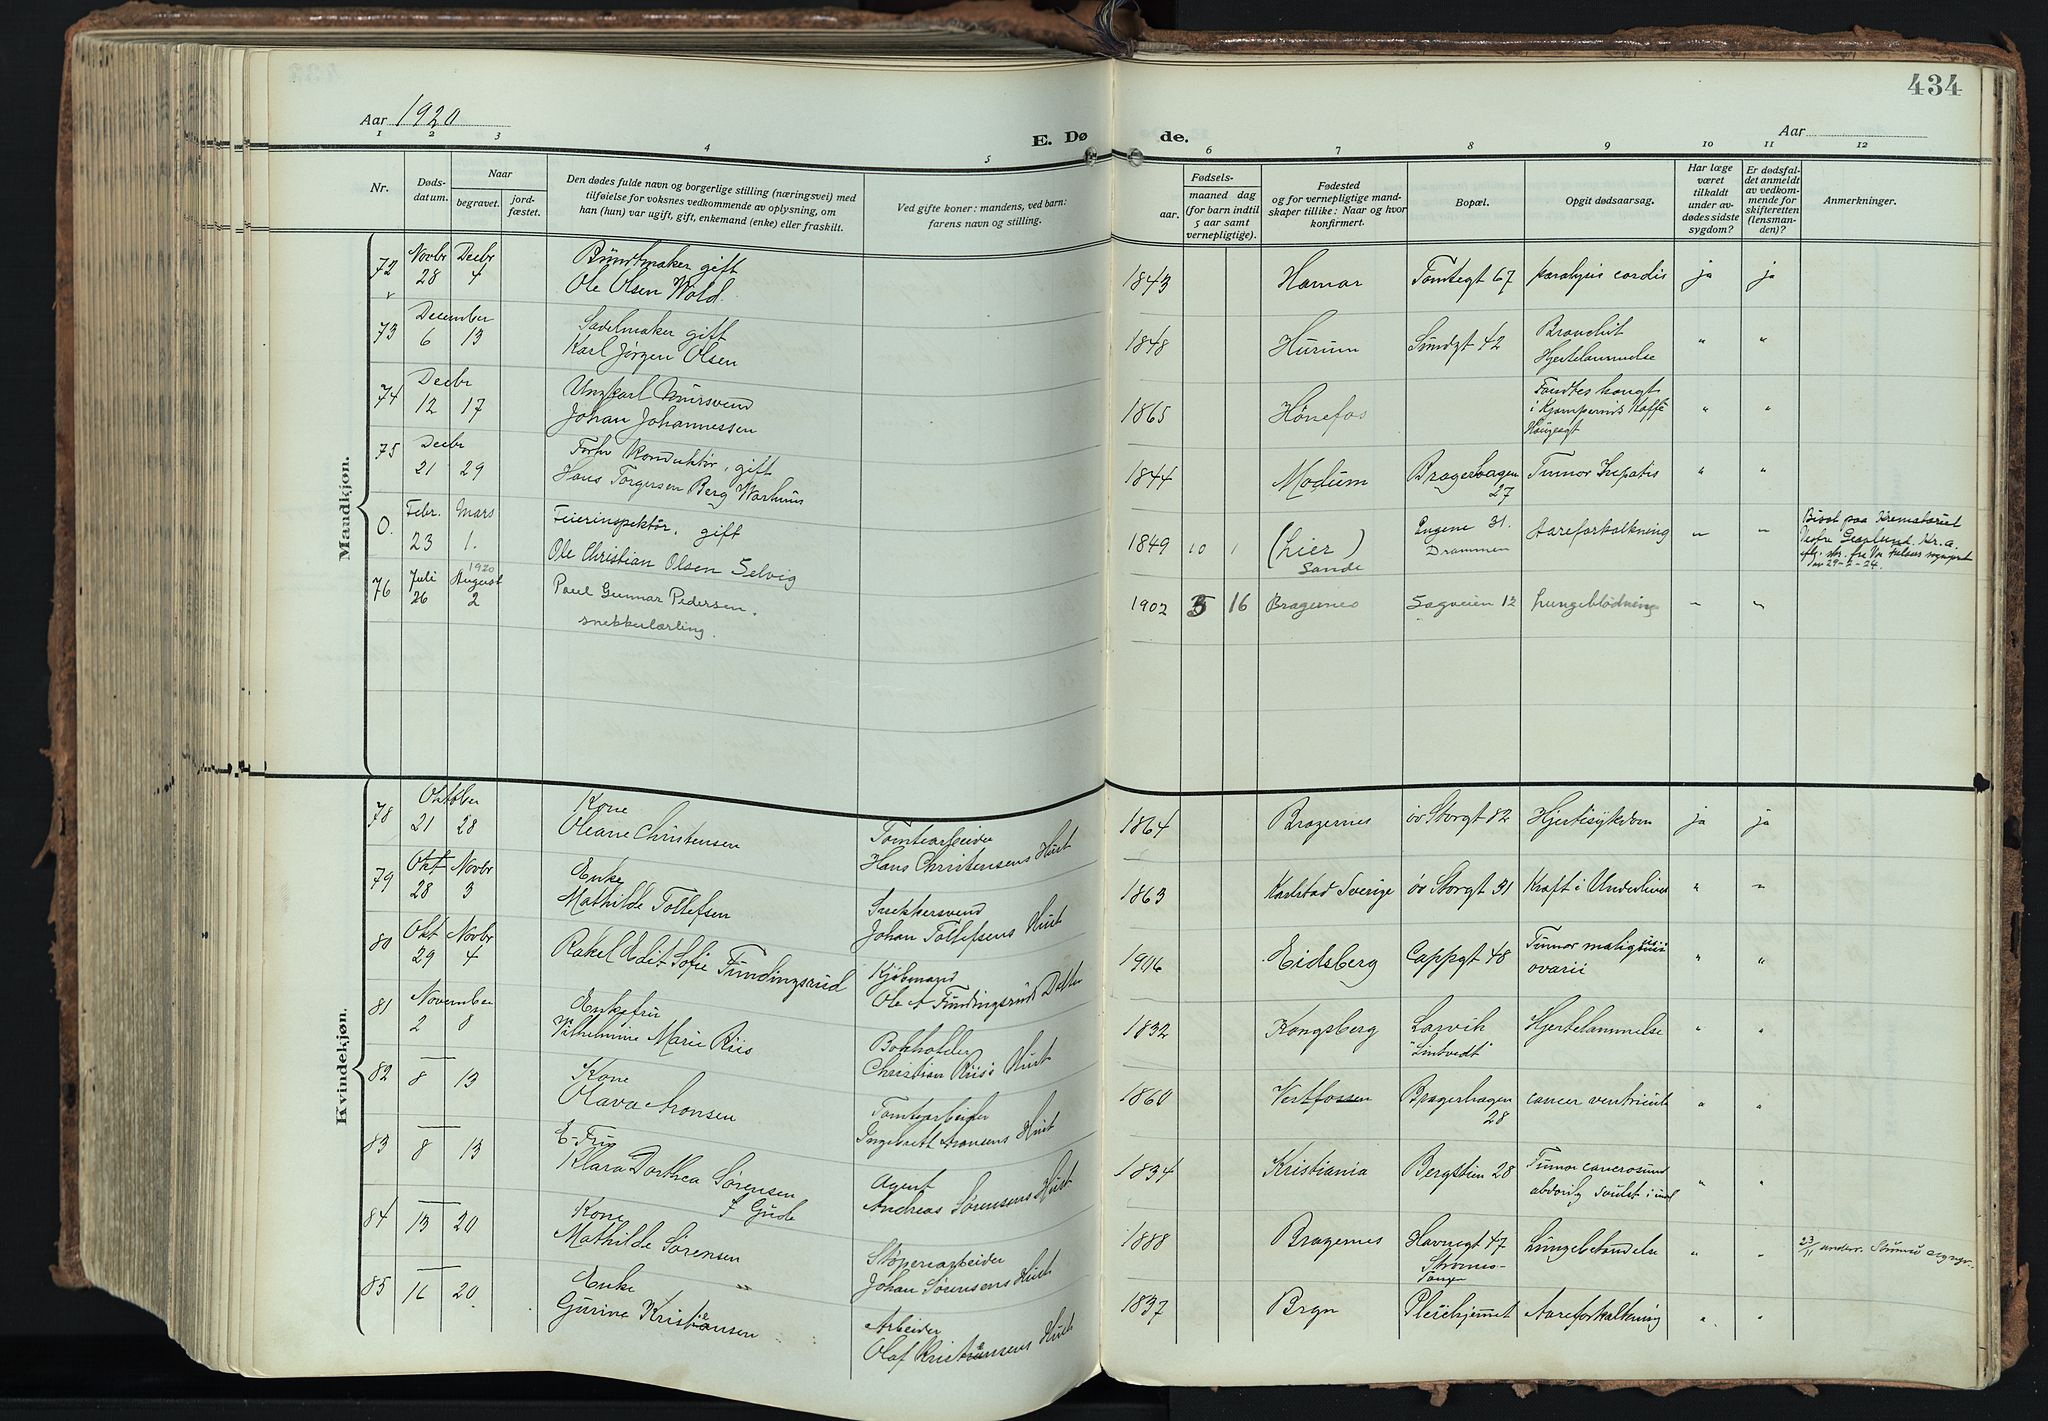 434
Aar 1920
E. Dø de.
Aar
1 2 3 4 5 6 7 8 9 10 11 12
Nr.
Døds-
datum.
Naar
begravet.
jord-
fæstet.
Den dødes fulde navn og borgerlige stilling (næringsvei) med
tilføielse for voksnes vedkommende av oplysning, om
han (hun) var ugift, gift, enkemand (enke) eller fraskilt.
Ved gifte koner: mandens, ved barn:
farens navn og stilling.
Fødsels-
aar.
maaned dag
(for barn indtil
5 aar samt
vernepligtige).
Fødested
og for vernepligtige mand-
skaper tillike: Naar og hvor
konfirmert.
Bopæl.
Opgit dødsaarsag.
Har læge
været
tilkaldt
under av-
dødes sidste
sygdom?
Er dødsfal-
det anmeldt
av vedkom-
mende for
skifteretten
(lensman-
den)?
Anmerkninger.
Mandkjøn.
72 Novbr Decbr Bundtmaker gift
28 4 Ole Olsen Wold 1843 Hamar Tomtegt 67 paralysis cordis ja ja
73 December Sadelmaker gift
6 13 Karl Jørgen Olsen 1848 Hurum Sundgt 42 Hjertelammelse " "
74 Decbr Ungkarl Mursvend
12 17 Johan Johannessen 1865 Hønefos Haugesgt " "
75 Decbr Forhv Konduktør, gift
21 29 Hans Torgersen Berg 1844 Modum Bragerhagen Tumor hepatis " "
27
0. Febr. Mars Feierinspektør, gift
23 1. Ole Christian Olsen Selvig 1849 10 1 (Lier) Engene 31. Aareforkalkning " "
Sande Drammen
Bisat paa Krematoriet
29-2-24.
76 Juli August 1920 Paul Gunnar Pedersen.
26 2 snekkerlærling. 1902 5 16 Bragernes Sagveien 12 Lungeblødning " "
Kvindekjøn.
78 Oktober Kone
21 28 Oleane Christensen Tomtearbeider
Hans Christensens Hust 1864 Bragernes øv Storgt 82 Hjertesykdom ja ja
79 Okt Novbr Enke
28 3 Mathilde Tollefsen Snekkersvend
Johan Tollefsens Hust 1863 Karlstad Sverige øv Storgt 31 Kræft i Underlivet " "
80 Okt Novbr
29 4 Rakel Edit Sofie Fundingsrud Kjøbmand
Ole A Fundingsruds Datter 1906 Eidsberg Cappgt 48 Tumor malignus
ovarii " "
81 November Enkefru
2 8 Vilhelmine Marie Riis Bokholder
Christian Riis' Hust 1832 Kongsberg Larvik Hjertelammelse " "
"Lintvedt"
82 — Kone
8 13 Olava Aronsen Tomtearbeider
Ingebreth Aronsens Hust 1860 Vestfossen Bragerhagen cancer ventriculi " "
28
83 — E-Fru
8 13 Klara Dorthea Sørensen
f Gude Agent
Andreas Sørensens Hust 1834 Kristiania Bergstien 28 Tumor cancrosum " "
84 — Kone
13 20 Mathilde Sørensen Støperiarbeider
Johan Sørensens Hust 1888 Bragernes Havnegt 47 Lungebetændelse " "
Strømsø-
Tangen
23/11 underr. Strømsø sognepr.
85 — Enke
16 20 Gurine Kristiansen Arbeider
Olaf Kristiansens Hust 1837 Brgn Pleiehjemmet Aareforkalkning " "